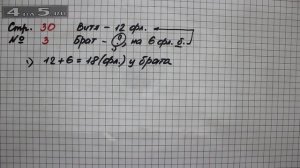 4 on 5.ru
Стр. 30 Витя – 12 фл.
№ 3 Брат – ?, на 6 фл. б.
1) 12 + 6 = 18 (фл.) у брата